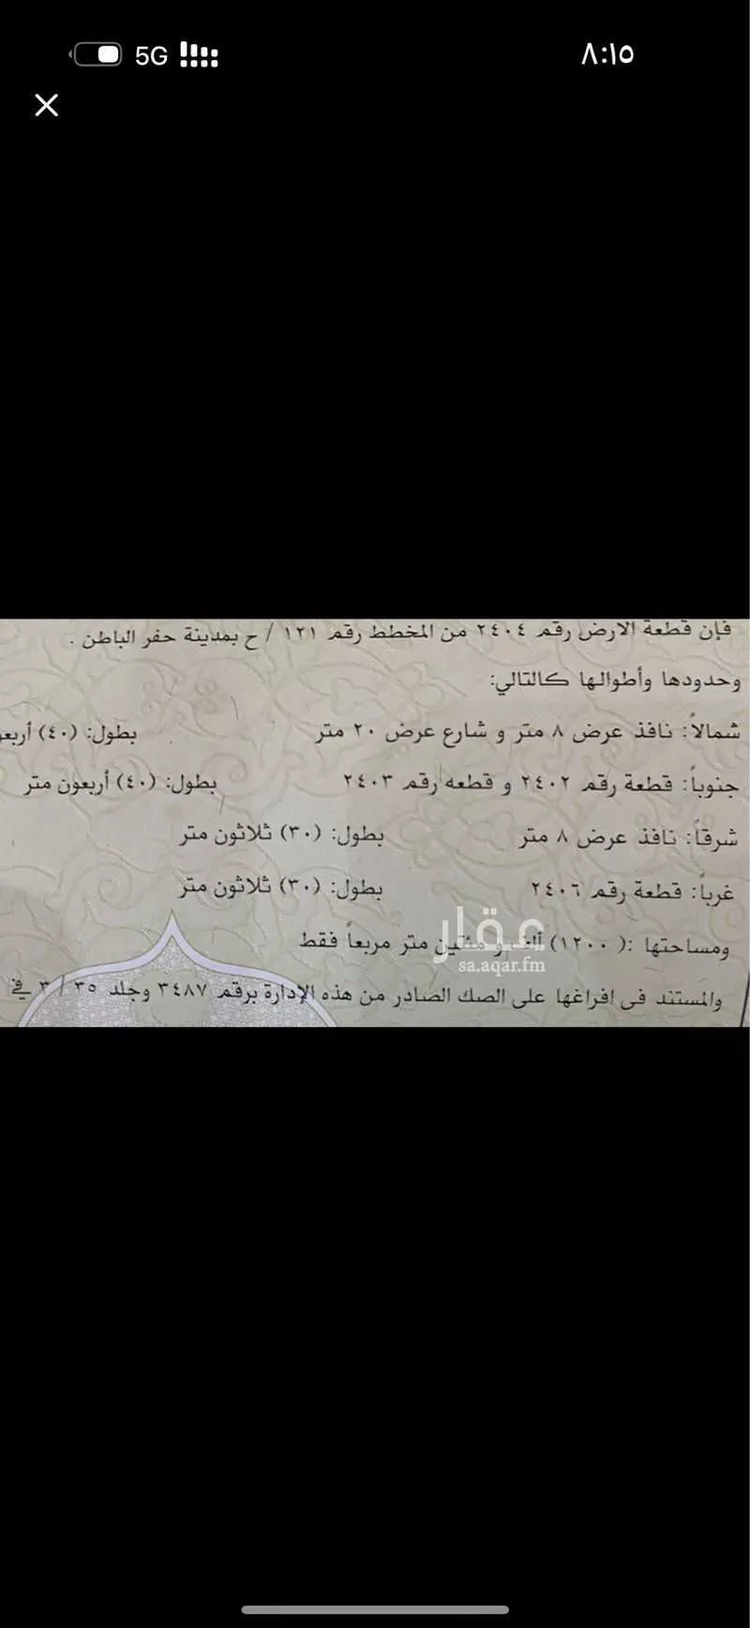 5G
٨:١٥
فإن قطعة الارض رقم ٢٤٠٤ من المخطط رقم ١٢١ / ح بمدينة حفر الباطن .
وحدودها وأطوالها كالتالي:
شمالاً: نافذ عرض ٨ متر و شارع عرض ٢٠ متر بطول: (٤٠)
جنوباً: قطعة رقم ٢٤٠٢ و قطعه رقم ٢٤٠٣ بطول: (٤٠) أربعون متر
شرقاً: نافذ عرض ٨ متر بطول: (٣٠) ثلاثون متر
غرباً: قطعة رقم ٢٤٠٦ بطول: (٣٠) ثلاثون متر
ومساحتها :( ١٢٠٠) متر مربعاً فقط
عقار
sa.aqar.fm
والمستند في افراغها على الصك الصادر من هذه الإدارة برقم ٣٤٨٧ وجلد ٣٥ / ٣ في